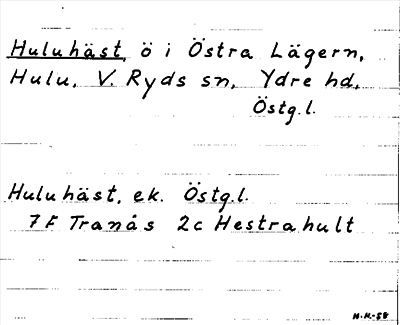 Huluhäst, ö i Östra Lägern,
Hulu, V. Ryds sn, Ydre hd,
Östg.l.
Huluhäst, ek. Östg.l.
7F Tranås 2c Hestrahult
H.K-58